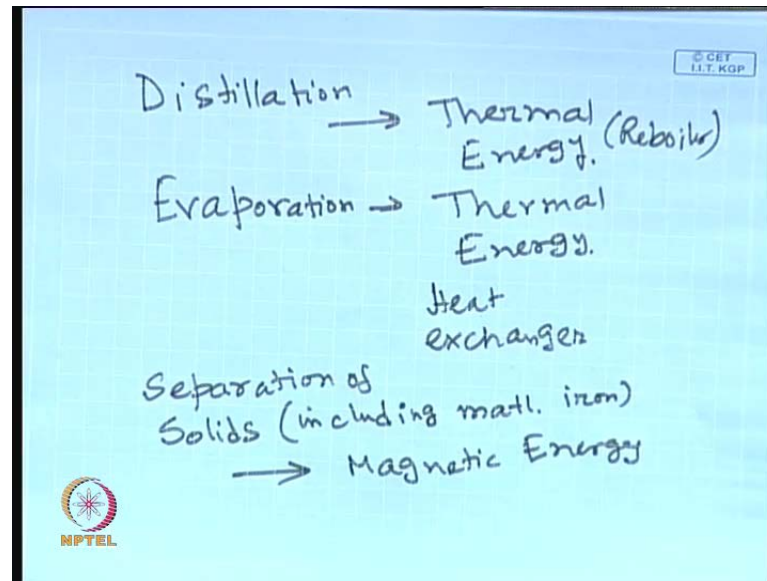 © CET
I.I.T. KGP
Distillation
→ Thermal
Energy. (Reboiler)
Evaporation → Thermal
Energy.
Heat
exchanger
Separation of
Solids (including matl. iron)
→ Magnetic Energy
NPTEL